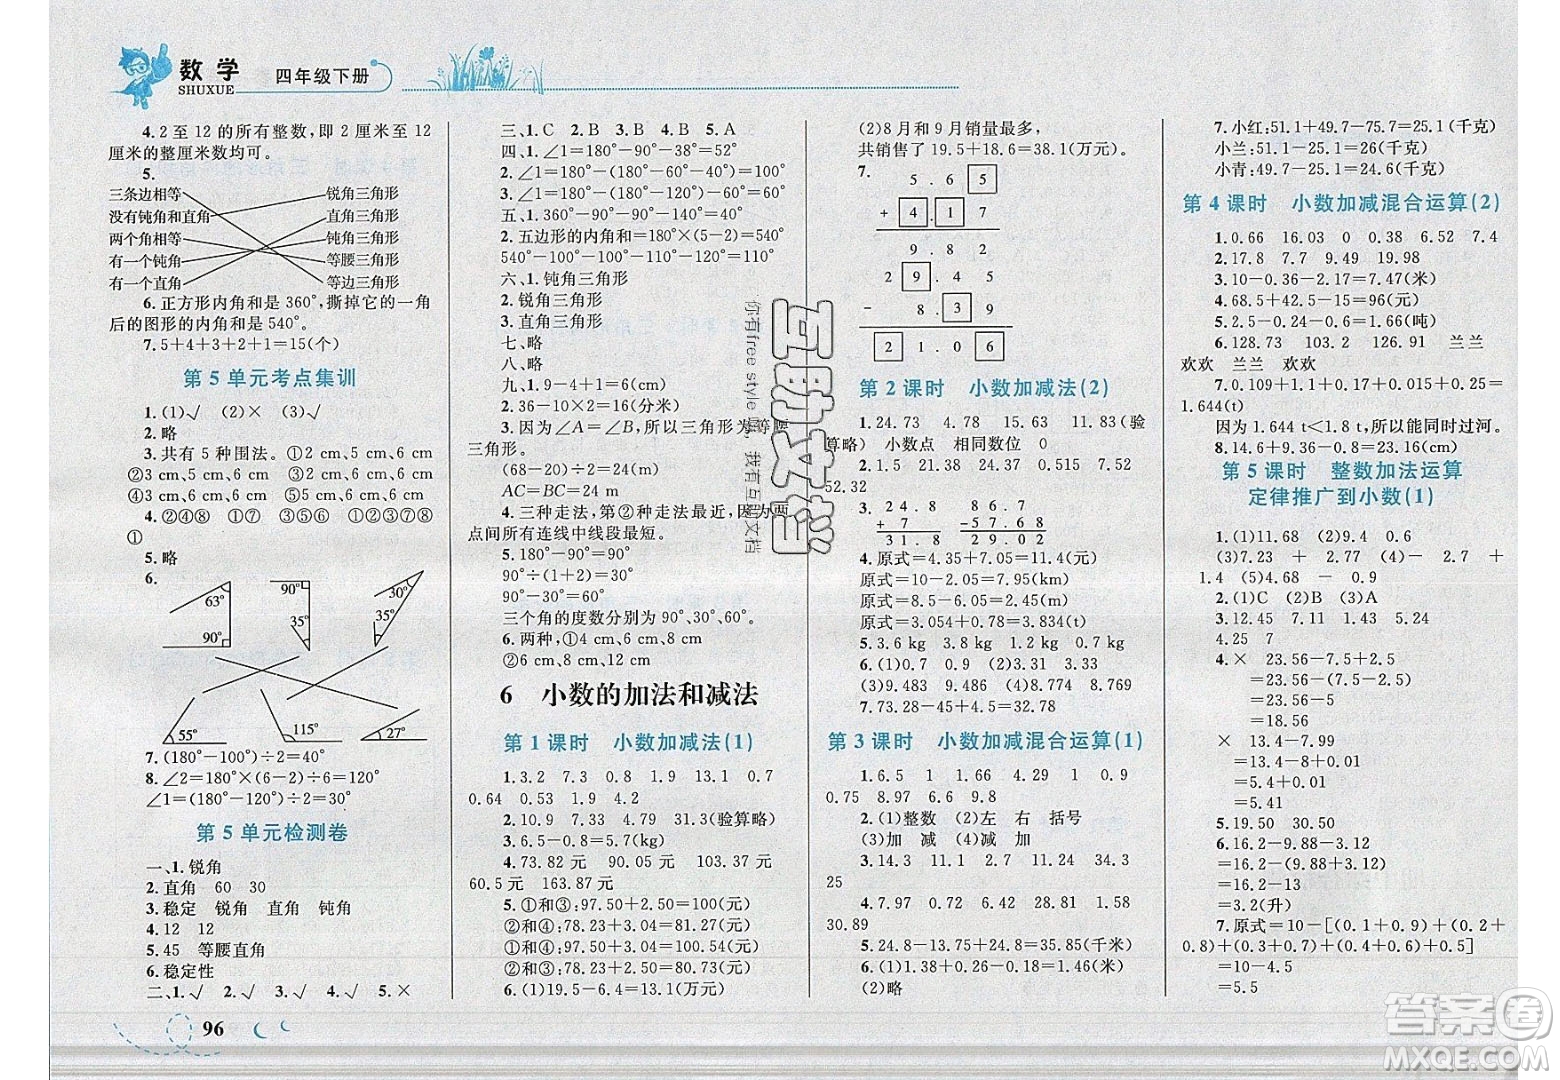 数学
SHUXUE
四年级下册
4.2 至 12 的所有整数,即 2 厘米至 12
厘米的整厘米数均可。
5.
三条边相等 锐角三角形
没有钝角和直角 直角三角形
两个角相等 钝角三角形
有一个钝角 等腰三角形
有一个直角 等边三角形
6.正方形内角和是 360°,撕掉它的一角
后的图形的内角和是 540°。
7.5+4+3+2+1=15(个)
第 5 单元考点集训
1.(1)√ (2)× (3)√
2.略
3.共有 5 种围法。①2 cm、5 cm、6 cm
②3 cm、5 cm、6 cm ③2 cm、6 cm、6 cm
④3 cm、6 cm、6 cm ⑤5 cm、6 cm、6 cm
4.②④⑧ ①⑦ ③⑤⑥ ②④⑥⑧
①
5.略
6.
63° 90° 90° 35° 30° 35°
55° 115° 27°
7.(180°-100°)÷2=40°
8.∠2=180°×(6-2)÷6=120°
∠1=(180°-120°)÷2=30°
第 5 单元检测卷
一、1.锐角
2.直角 60 30
3.稳定 锐角 直角 钝角
4.12 12
5.45 等腰直角
6.稳定性
二、1.√ 2.√ 3.√ 4.√ 5.×
96
三、1.C 2.B 3.B 4.B 5.A
四、1.∠1=180°-90°-38°=52°
2.∠1=180°-(180°-60°-40°)=100°
3.∠1=180°-(180°-130°)-90°=40°
五、1.360°-90°-90°-140°=40°
2.五边形的内角和=180°×(5-2)=540°
540°-100°-100°-120°-110°=110°
六、1.钝角三角形
2.锐角三角形
3.直角三角形
七、略
八、略
九、1.9-4+1=6(cm)
2.36-10×2=16(分米)
3.因为∠A=∠B,所以三角形为等腰
三角形。
(68-20)÷2=24(cm)
AC=BC=24(cm)
4.三种走法,第②种走法最近,因为两
点间所有连线中线段最短。
5.180°-90°=90°
90°÷(1+2)=30°
90°-30°=60°
三个角的度数分别为 90°、30°、60°
6.两种,①4 cm、8 cm、8 cm
②6 cm、8 cm、6 cm
6 小数的加法和减法
第 1 课时 小数加减法(1)
1.3.2 7.3 0.8 1.9 13.1 0.7
0.64 0.53 1.9 4.2
2.10.9 7.32 4.79 31.3(验算略)
3.6.5-0.8=5.7(kg)
4.73.82 元 90.05 元 103.37 元
60.5 元 163.87 元
5.①和③:97.50+2.50=100(元)
②和④:78.23+3.04=81.27(元)
①和④:97.50+3.04=100.54(元)
②和③:78.23+2.50=80.73(元)
6.(1)19.5-6.4=13.1(万元)
(2)8 月和 9 月销量最多,
共销售了 19.5+18.6=38.1(万元)。
7.
5 . 6 5
+ 4 . 1 7
9 . 8 2
2 9 . 4 5
- 8 . 3 9
2 1 . 0 6
第 2 课时 小数加减法(2)
1.24.73 4.78 15.63 11.83(验
算略) 小数点 相同数位 0
2.1.5 21.38 24.37 0.515 7.52
52.32
3. 2 4 . 8 8 7 . 7 0
+ 7 -5 7 . 6 8
3 1 . 8 2 9 . 0 2
4.原式=4.35+7.05=11.4(元)
原式=10-2.05=7.95(km)
原式=8.5-6.05=2.45(m)
原式=3.054+0.78=3.834(t)
5.3.6 kg 3.8 kg 1.2 kg 4 kg
6.(1)0.7 0.9 (2)3.31 3.33
(3)9.483 9.486 (4)8.774 8.769
7.73.28-45+4.5=32.78
第 3 课时 小数加减混合运算(1)
1.6.5 1 1.66 4.29 1 0.9
0.75 8.97 6.6 9.8
2.(1)整数 (2)左 右 括号
(3)加 减 (4)减 加
3.14.3 11.9 2.8 11.2 24.53
25
4.7.97 0.72 6.42 28.81 1.58
30.89
5.24.8-13.75+24.8=35.85(千米)
6.(1)1.38+0.26-0.48=1.16(米)
(2)略
7.小红:51.1+49.7-75.7=25.1(千克)
小兰:51.1-25.1=26(千克)
小青:49.7-25.1=24.6(千克)
第 4 课时 小数加减混合运算(2)
1.0.66 16.03 0 0.38 6.52 7.4
2.17.8 7.7 9.49 19.98
3.10-0.36-2.17=7.47(米)
4.68.5+42.5-15=96(元)
5.2-0.01-0.33=1.66(吨)
6.128.73 103.2 126.91 兰兰
欢欢 兰兰 欢欢
7.0.109+1.1+0.17+0.015+0.25=
1.644(t)
因为 1.644 t<1.8 t,所以能同时过河。
8.14.6+9.36-0.8=23.16(cm)
第 5 课时 整数加法运算
定律推广到小数(1)
1.(1)11.68 (2)9.4 0.6
(3)7.23 + 2.77 (4)- 2.7 +
1.4 (5)4.68 - 0.9
2.(1)C (2)B (3)A
3.12.45 7.11 1.43 12.46
4.25 7
4.× 23.56-7.5+2.5
=23.56-5+2.5
=23.56-5
=18.56
× 13.4-7.99
=13.4-8+0.01
=5.4+0.01
=5.41
5.19.50 30.50
6.16.2-9.88-3.12
=16.2-(9.88+3.12)
=16.2-13
=3.2(升)
7.原式=10-[(0.1+0.9)+(0.2+
0.8)+(0.3+0.7)+(0.4+0.6)+0.5]
=10-4.5
=5.5
互助文档
你有free style 吗,我有互助文档
答案圈
MXQE.COM